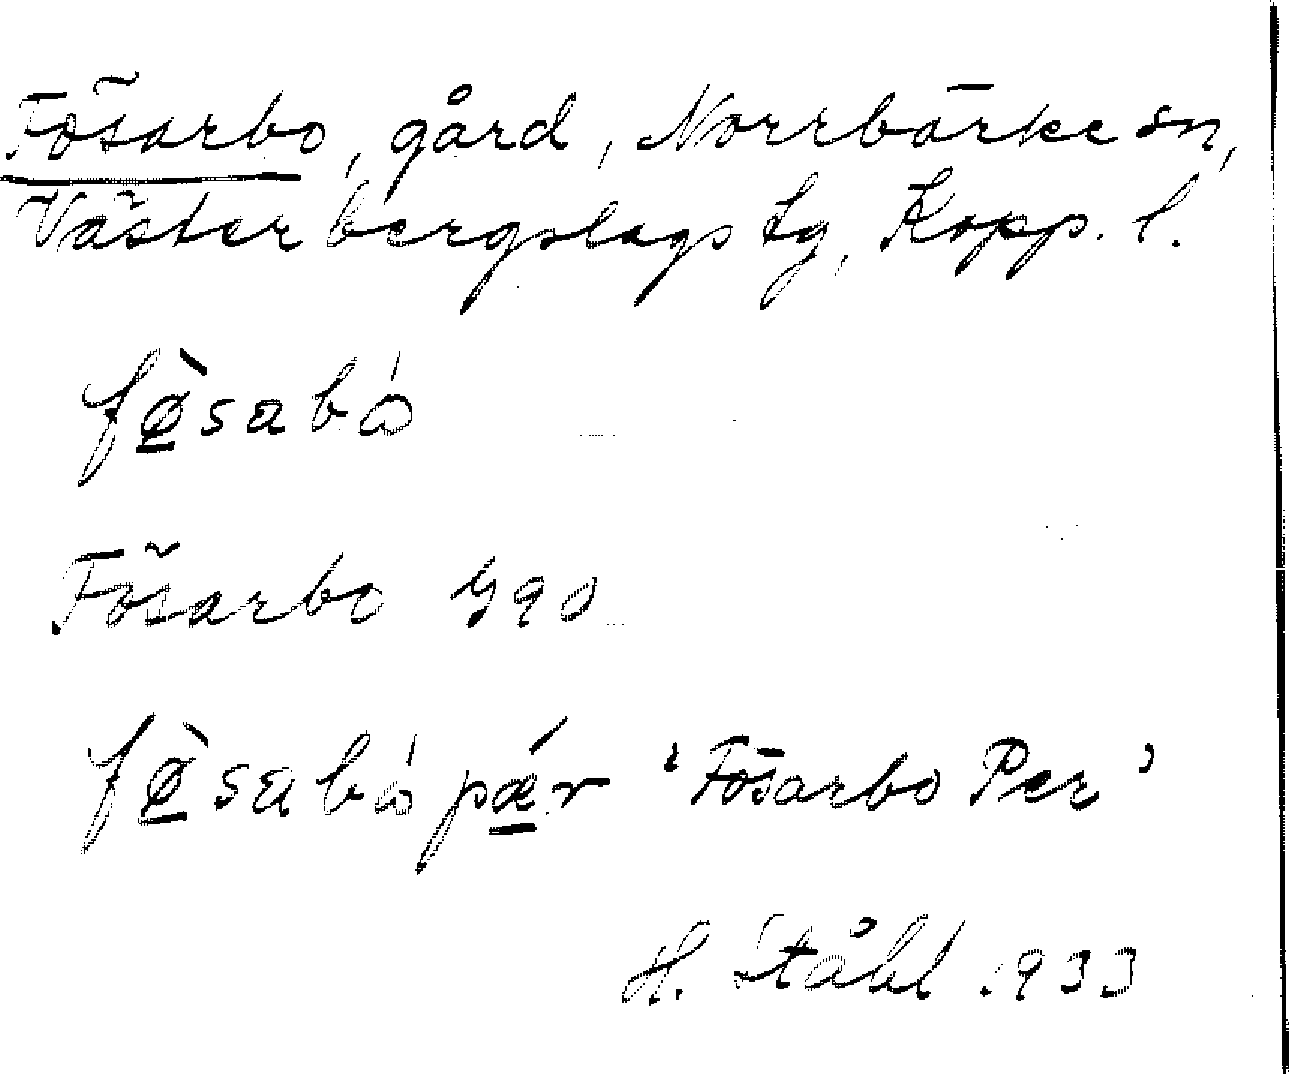 Fösarbo, gård, Norrbärke sn,
Västerbergslags tg, Kopp. l.
fø̀sabó
Fösarbo 490
fø̀sabópǽr ‘Fösarbo Per’
H. Ståhl 1933